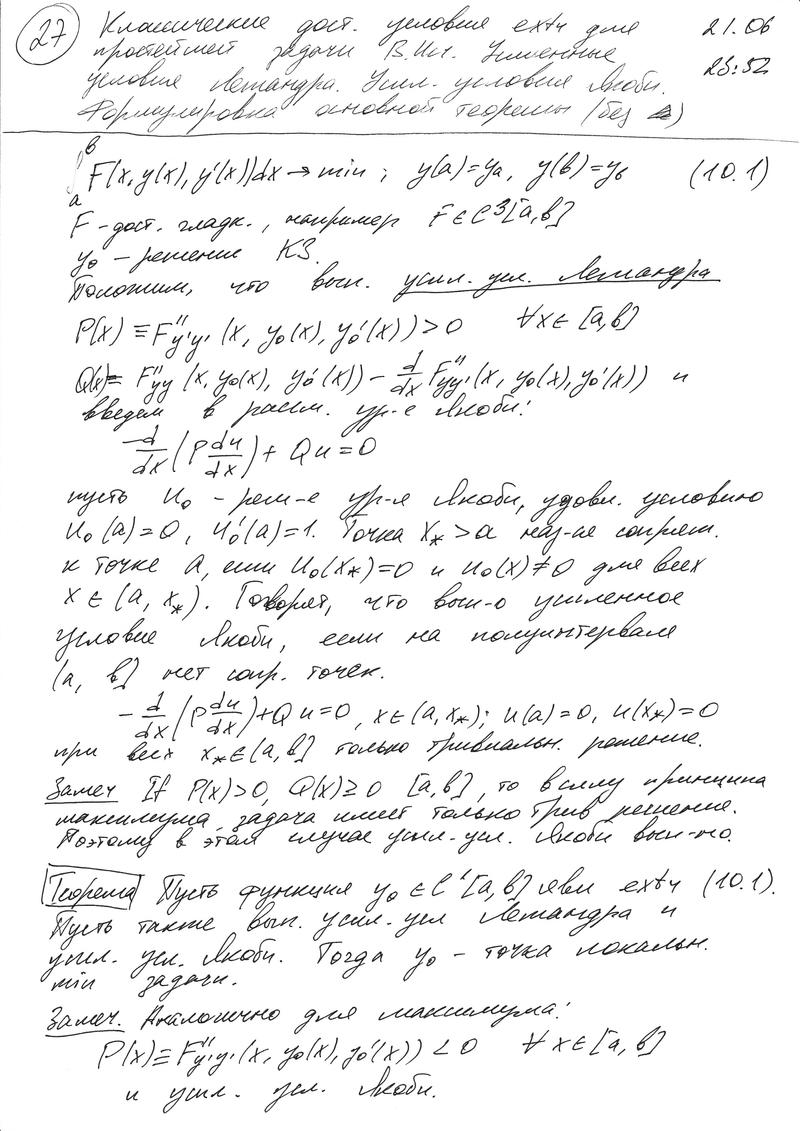 27 Классические дост. условия extr для 21.06
простейшей задачи В.Ис. Усиленные 23:52
условия Лежандра. Усил. условия Якоби.
Формулировка основной теоремы (без △)
∫ₐᵇ F(x, y(x), y'(x))dx → min ; y(a)=yₐ, y(b)=y_b (10.1)
F - дост. гладк., например F ∈ C³[a,b]
y₀ - решение КЗ.
Положим, что вып. усил. усл. Лежандра
P(x) ≡ F''y'y' (x, y₀(x), y₀'(x)) > 0 ∀x∈[a,b]
Q(x)= F''yy (x, y₀(x), y₀'(x)) - d/dx F''yy' (x, y₀(x), y₀'(x)) и
введем в рассм. ур-е Якоби:
-d/dx (P du/dx) + Qu = 0
пусть u₀ - реш-е ур-я Якоби, удовл. условию
u₀(a)=0, u₀'(a)=1. Точка x* > a наз-ся сопряж.
к точке a, если u₀(x*)=0 и u₀(x)≠0 для всех
x ∈ (a, x*). Говорят, что вып-о усиленное
условие Якоби, если на полуинтервале
(a, b] нет сопр. точек.
-d/dx (P du/dx) + Qu=0, x∈(a,x*); u(a)=0, u(x*)=0
при всех x*∈(a,b] только тривиальн. решение.
Замеч If P(x)>0, Q(x)≥0 [a,b], то в силу принципа
максимума задача имеет только трив решение.
Поэтому в этом случае усил-усл. Якоби вып-но.
Теорема Пусть функция y₀ ∈ C¹[a,b] явл extr (10.1).
Пусть также вып. усил. усл Лежандра и
усил. усл. Якоби. Тогда y₀ - точка локальн.
min задачи.
Замеч. Аналогично для максимума:
P(x) ≡ F''y'y' (x, y₀(x), y₀'(x)) < 0 ∀x∈[a,b]
и усил. усл. Якоби.